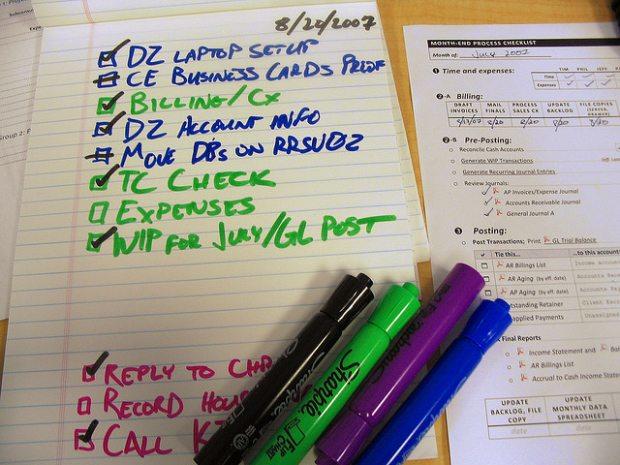 8/20/2007
DZ LAPTOP SETUP
CE BUSINESS CARDS PROOF
BILLING/CX
DZ ACCOUNT INFO
MOVE DB'S ON RRSUDZ
TC CHECK
EXPENSES
WIP FOR JULY/GL POST
REPLY TO
RECORD
CALL
Sharpie
FLIP CHART
MONTH-END PROCESS CHECKLIST
Month of: JULY 2007
1 Time and expenses:
TIM PHIL JEFF
Time
Expenses
2-A Billing:
DRAFT INVOICES
MAIL FINALS
PROCESS SALES CX
UPDATE BACKLOG
FILE COPIES
8/20 8/20 8/20
2-B Pre-Posting:
Reconcile Cash Accounts
Generate WIP Transactions
Generate Recurring Journal Entries
Review Journals:
AP Invoices/Expense Journal
Accounts Receivable Journal
General Journal A
3 Posting:
Post Transactions; Print GL Trial Balance
Tie this... ...to this account
AR Billings List
AR Aging (by eff. date)
AP Aging (by eff. date)
Outstanding Retainer
Payments
Final Reports
Income Statement and
AR Billings List
Accrual to Cash Income
UPDATE BACKLOG, FILE COPY
UPDATE MONTHLY DATA SPREADSHEET
date date